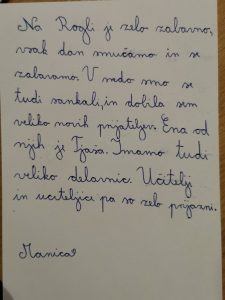 Na Rogli je zelo zabavno,
vsak dan smučamo in se
zabavamo. V sredo smo se
tudi sankali, in dobila sem
veliko novih prijateljev. Ena od
njih je Tjaša. Imamo tudi
veliko delavnic. Učitelji
in učiteljice pa so zelo prijazni.
Manica